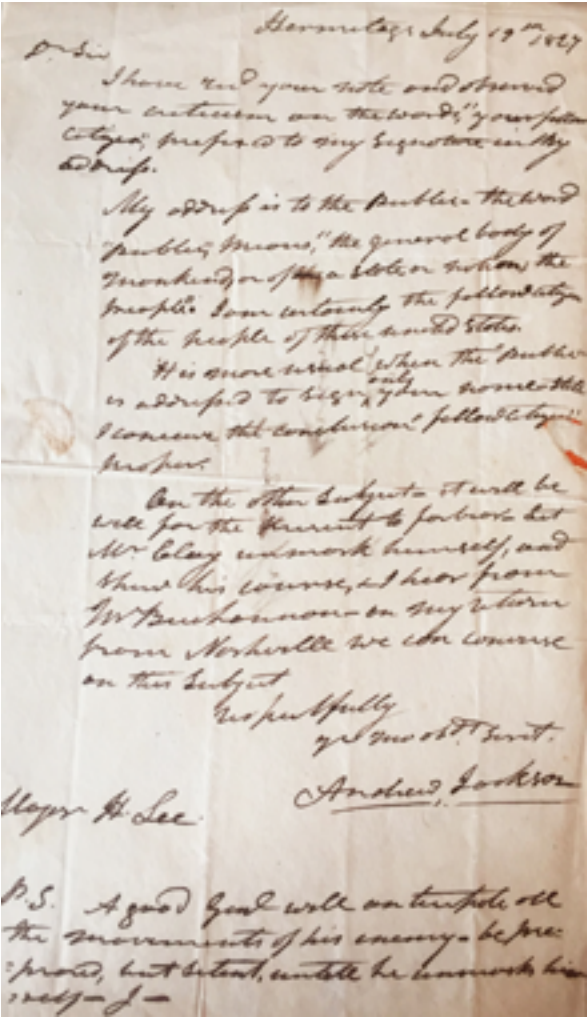 Hermitage July 19th 1827
Dr Sir
I have recd your note and observed
your criticism on the words, "your fellow
citizen," prefixed to my signature in My
address.
My address is to the Public - the word
"public, means," the general body of
mankind, or of a state or nation, the
people". I am certainly the fellow citizen
of the people of these united states.
It is more usual when the Public
is addressed to sign, only your name - still
I conceive the conclusion "fellow citizen"
proper.
On the other Subject - it will be
well for the present to forbear - Let
Mr Clay unmask himself, and
shew his course, & I hear from
Mr Buchannon - on my return
from Nashville we can converse
on this subject
respectfully
yr mo obdt servt.
Andrew Jackson
Major H Lee
P.S. A good Genl will anticipate all
the movements of his enemy - be pre-
:pared, but silent, untill he unmasks him
:self - J -